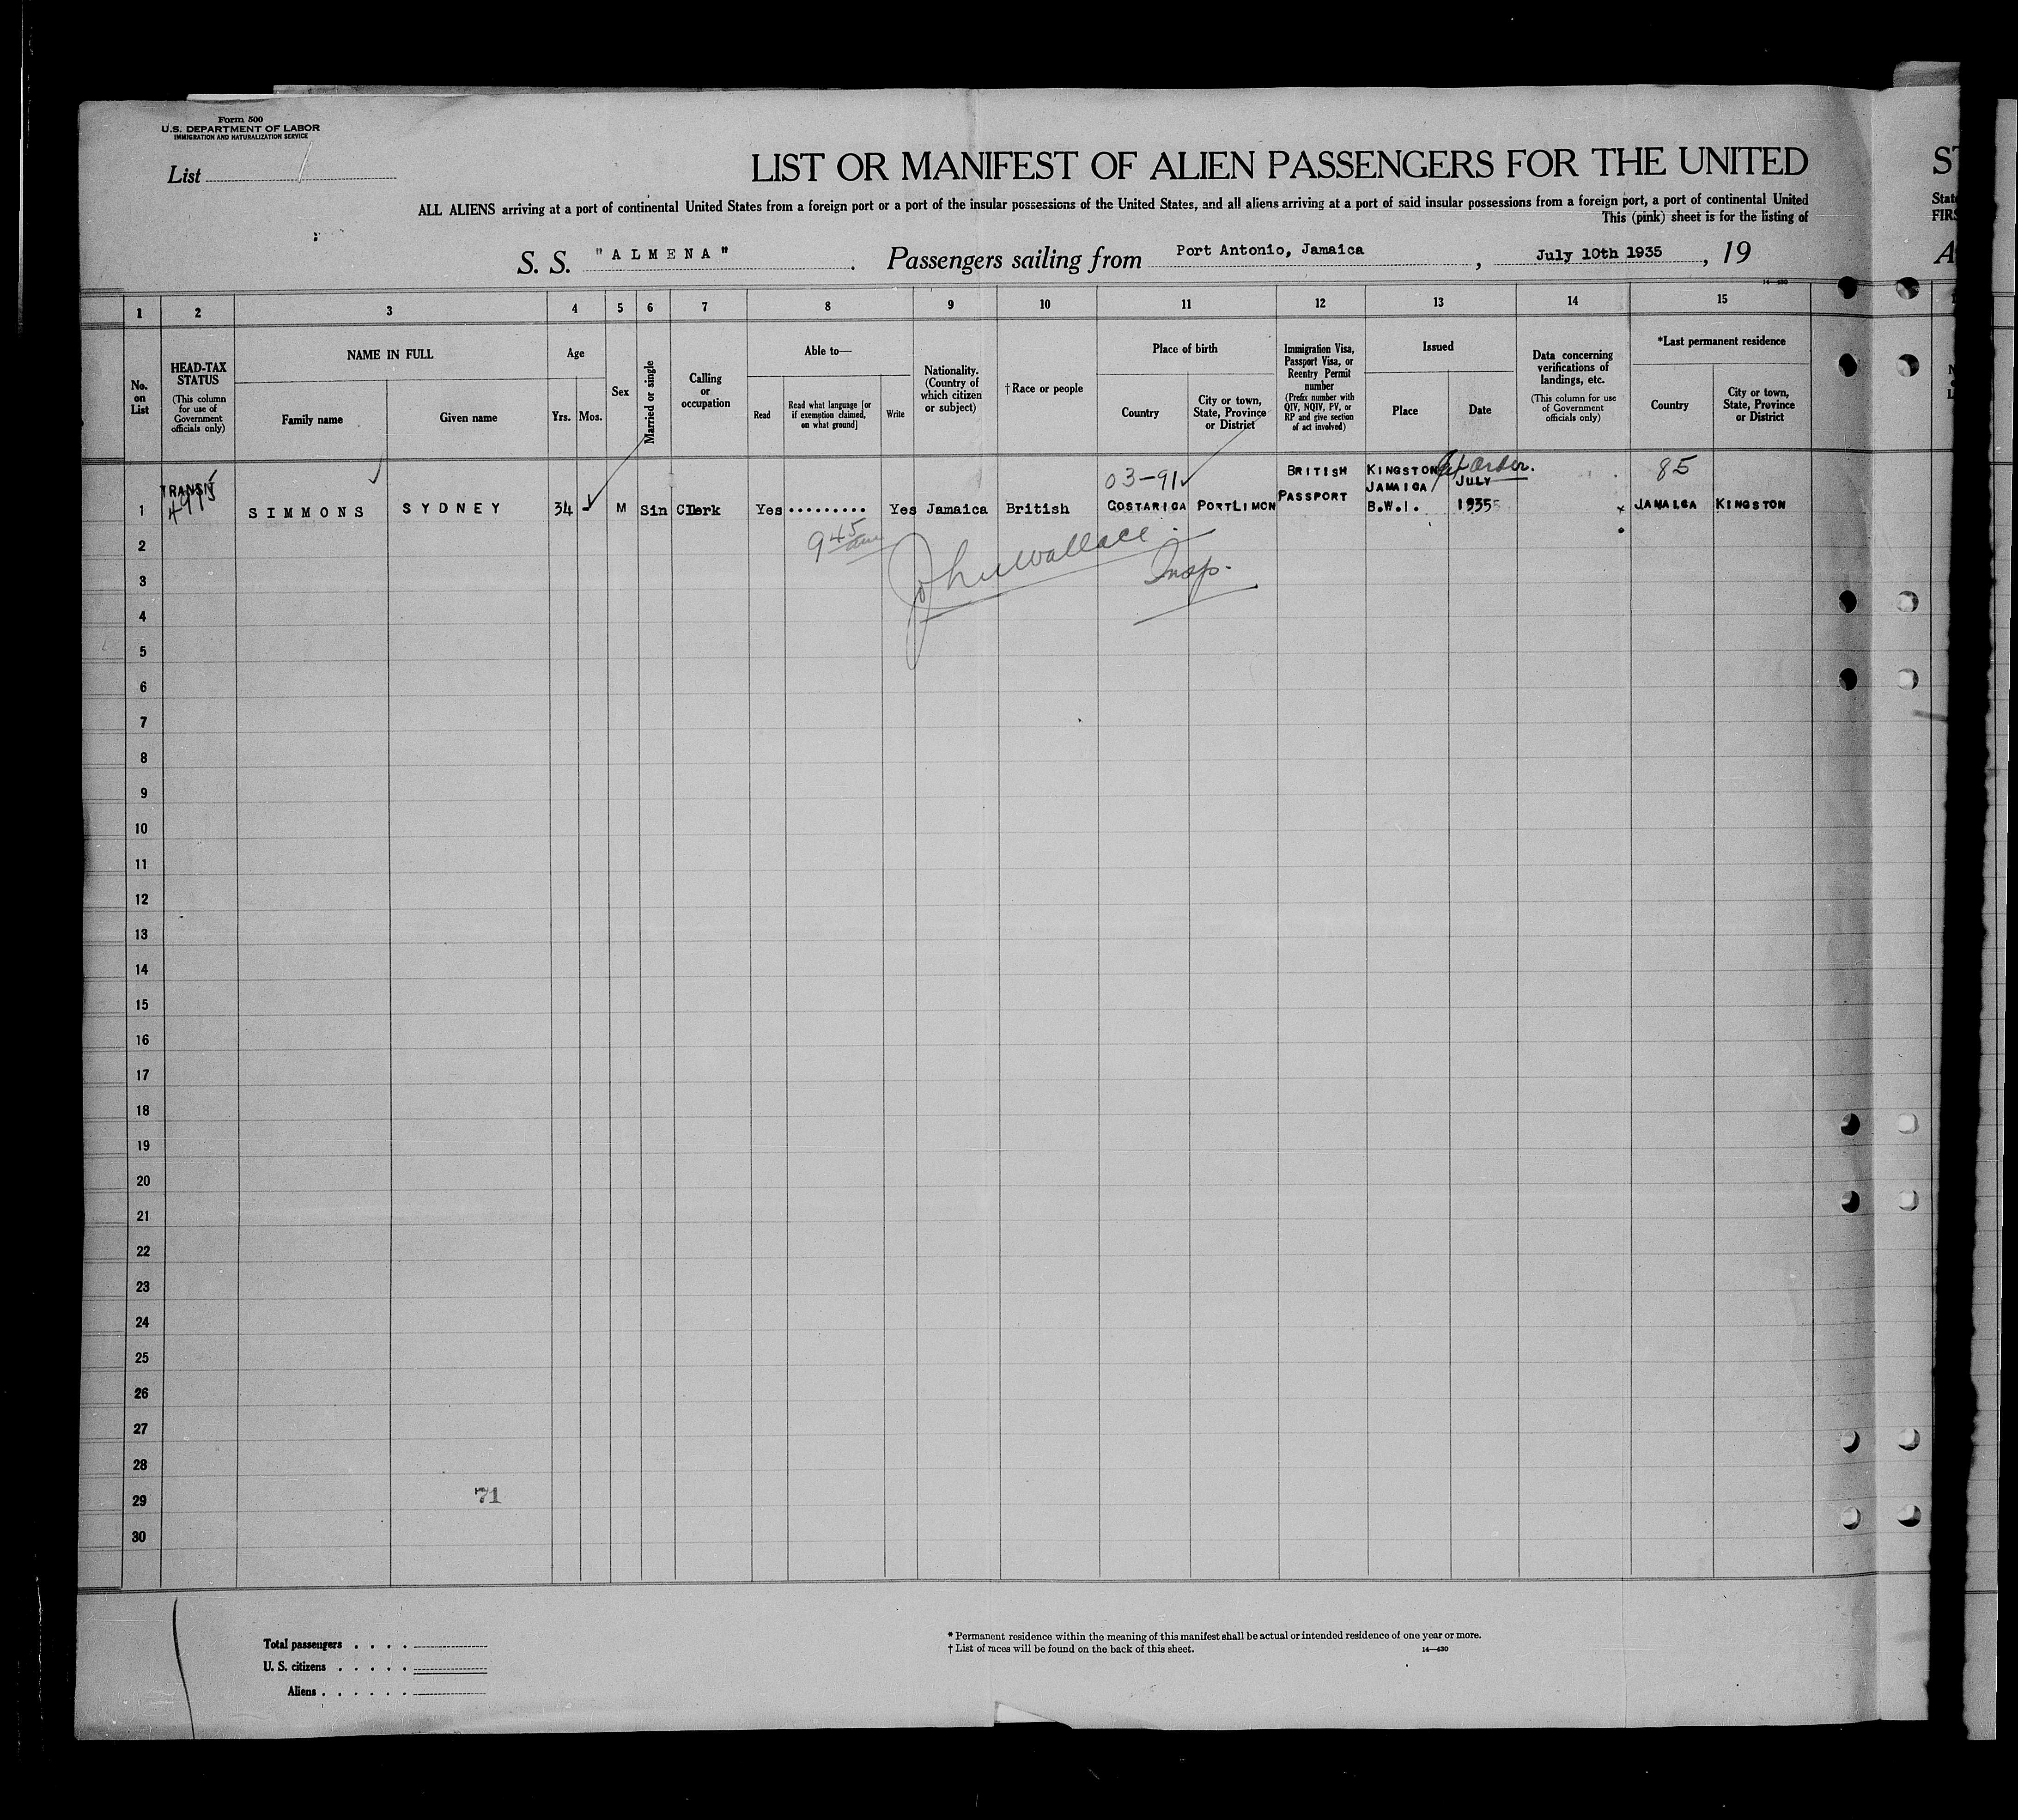 Form 500
U.S. DEPARTMENT OF LABOR
IMMIGRATION AND NATURALIZATION SERVICE
List
LIST OR MANIFEST OF ALIEN PASSENGERS FOR THE UNITED
ALL ALIENS arriving at a port of continental United States from a foreign port or a port of the insular possessions of the United States, and all aliens arriving at a port of said insular possessions from a foreign port, a port of continental United
This (pink) sheet is for the listing of
S. S. "ALMENA". Passengers sailing from Port Antonio, Jamaica, July 10th 1935, 19
ST
State
FIRS
A
14—430
1 2 3 4 5 6 7 8 9 10 11 12 13 14 15
No. on List
HEAD-TAX STATUS
(This column for use of Government officials only)
NAME IN FULL
Family name
Given name
Age
Yrs. Mos.
Sex
Married or single
Calling or occupation
Able to—
Read
Read what language [or if exemption claimed, on what ground]
Write
Nationality. (Country of which citizen or subject)
†Race or people
Place of birth
Country
City or town, State, Province or District
Immigration Visa, Passport Visa, or Reentry Permit number
(Prefix number with QIV, NQIV, PV, or RP and give section of act involved)
Issued
Place
Date
Data concerning verifications of landings, etc.
(This column for use of Government officials only)
*Last permanent residence
Country
City or town, State, Province or District
TRANSIT
03-91
BRITISH PASSPORT
KINGSTON JAMAICA B.W.I.
JULY 1935
85
1 SIMMONS SYDNEY 34 M Sin Clerk Yes......... Yes Jamaica British COSTARICA PORTLIMON JAMAICA KINGSTON
9 45 am
John Wallace
Insp.
2
3
4
5
6
7
8
9
10
11
12
13
14
15
16
17
18
19
20
21
22
23
24
25
26
27
28
29
71
30
Total passengers . . . .
U. S. citizens . . . . .
Aliens . . . . . .
* Permanent residence within the meaning of this manifest shall be actual or intended residence of one year or more.
† List of races will be found on the back of this sheet.
14—430